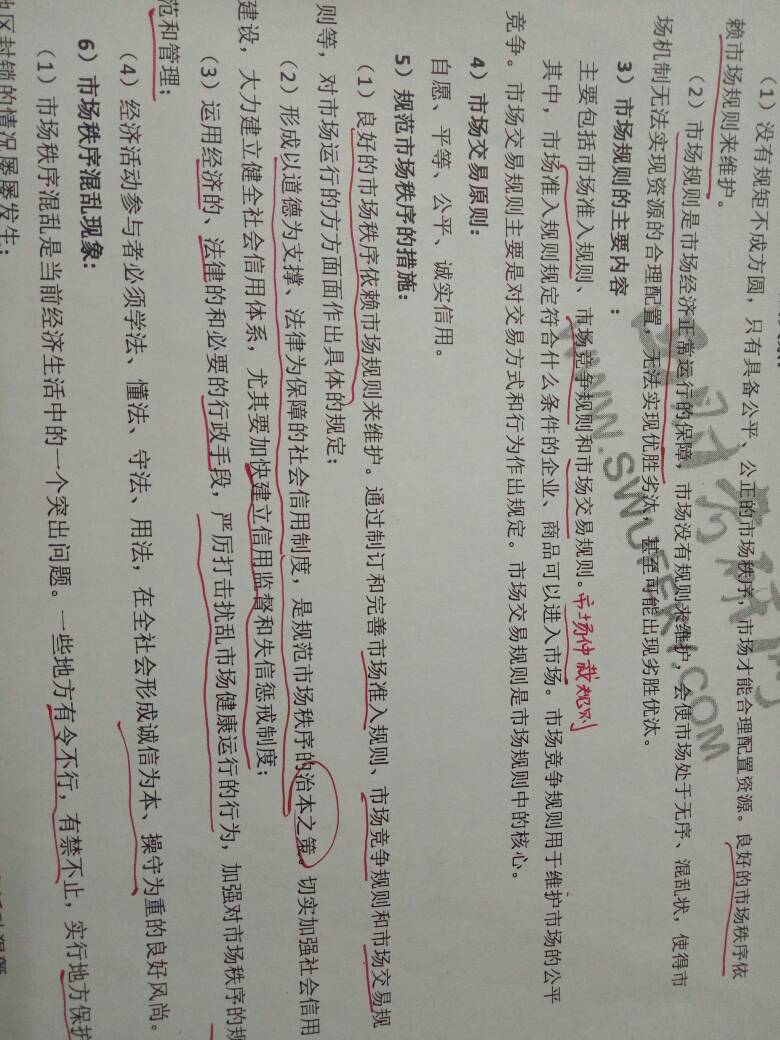 （1）没有规矩不成方圆，只有具备公平、公正的市场秩序，市场才能合理配置资源。良好的市场秩序依
赖市场规则来维护。
（2）市场规则是市场经济正常运行的保障，市场没有规则来维护，会使市场处于无序、混乱状，使得市
场机制无法实现资源的合理配置，无法实现优胜劣汰，甚至可能出现劣胜优汰。
3）市场规则的主要内容：
主要包括市场准入规则、市场竞争规则和市场交易规则。市场仲裁规则
其中，市场准入规则规定符合什么条件的企业、商品可以进入市场。市场竞争规则用于维护市场的公平
竞争。市场交易规则主要是对交易方式和行为作出规定。市场交易规则是市场规则中的核心。
4）市场交易原则：
自愿、平等、公平、诚实信用。
5）规范市场秩序的措施：
（1）良好的市场秩序依赖市场规则来维护。通过制订和完善市场准入规则、市场竞争规则和市场交易规
则等，对市场运行的方方面面作出具体的规定；
（2）形成以道德为支撑、法律为保障的社会信用制度，是规范市场秩序的治本之策。切实加强社会信用
建设，大力建立健全社会信用体系，尤其要加快建立信用监督和失信惩戒制度；
（3）运用经济的、法律的和必要的行政手段，严厉打击扰乱市场健康运行的行为，加强对市场秩序的规
范和管理；
（4）经济活动参与者必须学法、懂法、守法、用法，在全社会形成诚信为本、操守为重的良好风尚。
6）市场秩序混乱现象：
（1）市场秩序混乱是当前经济生活中的一个突出问题。一些地方有令不行，有禁不止，实行地方保护
地区封锁的情况屡屡发生；
WWW.SWUFEKY.COM